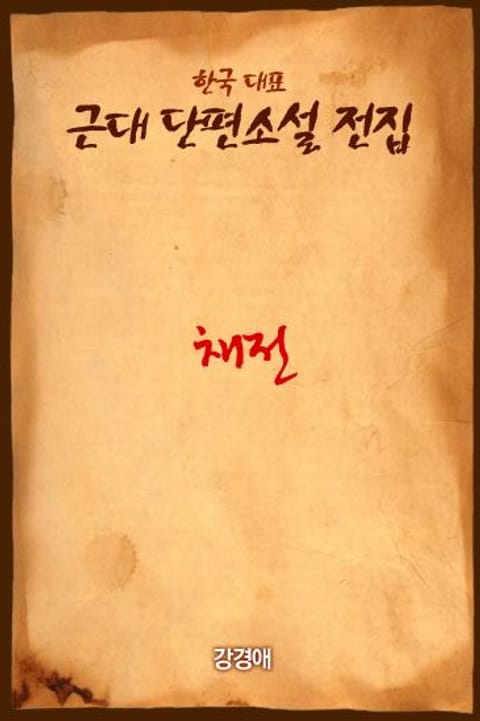 한국 대표
근대 단편소설 전집
채전
강경애